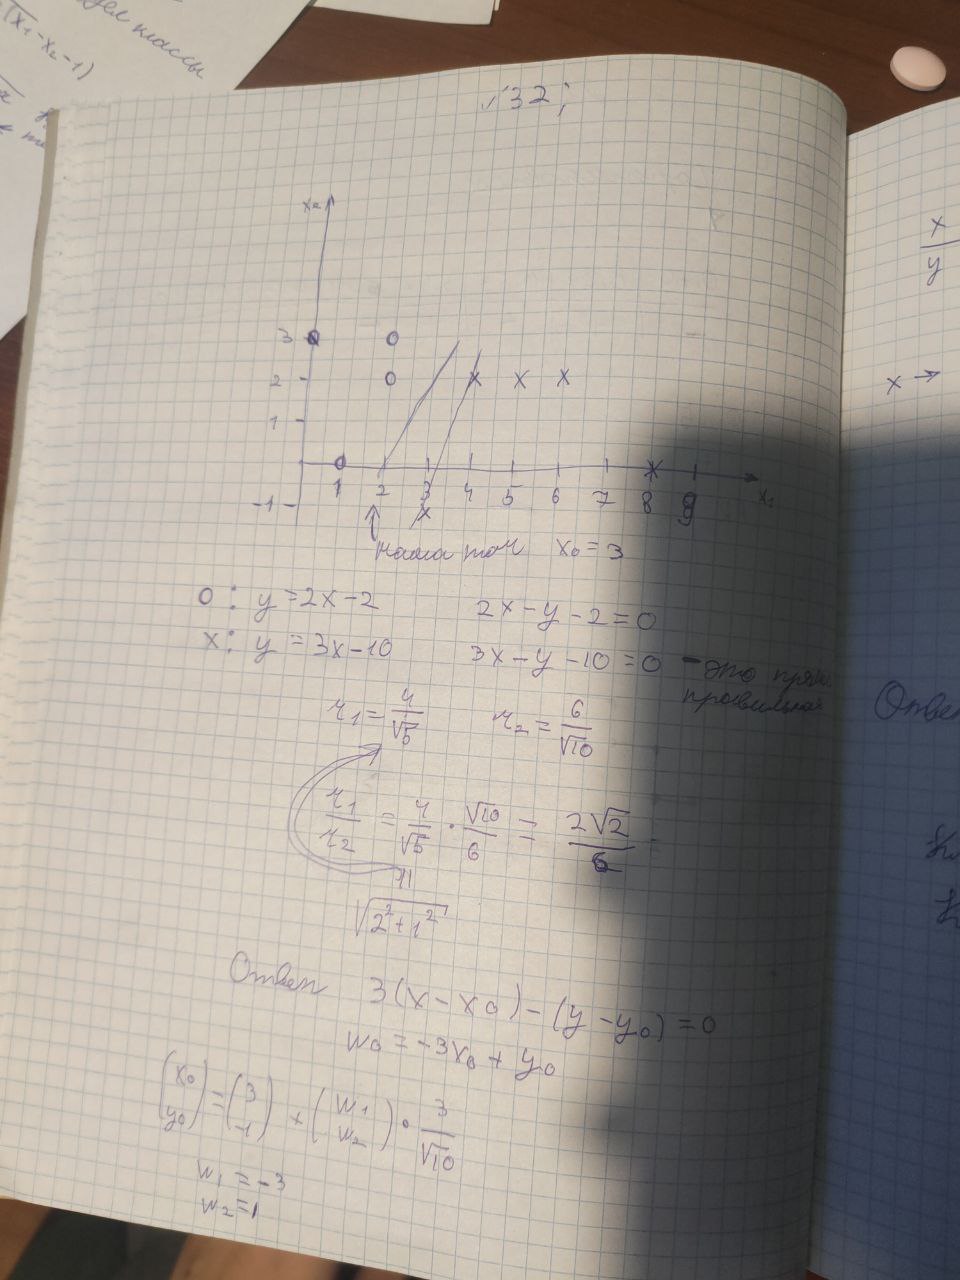 (x₁-x₂-1)
классы
№32;
x₂
3
2
1
-1
1 2 3 4 5 6 7 8 9
x₁
наша точ x₀ = 3
0: y = 2x - 2 2x - y - 2 = 0
x: y = 3x - 10 3x - y - 10 = 0 - это
правильная
r₁ = 4/√5 r₂ = 6/√10
r₁/r₂ = 4/√5 · √10/6 = 2√2/6 =
√(2² + 1²)
Ответ 3(x - x₀) - (y - y₀) = 0
w₀ = -3x₀ + y₀
(x₀ y₀) = (3 -1) + (w₁ w₂) · 3/√10
w₁ = -3
w₂ = 1
x/y
x →